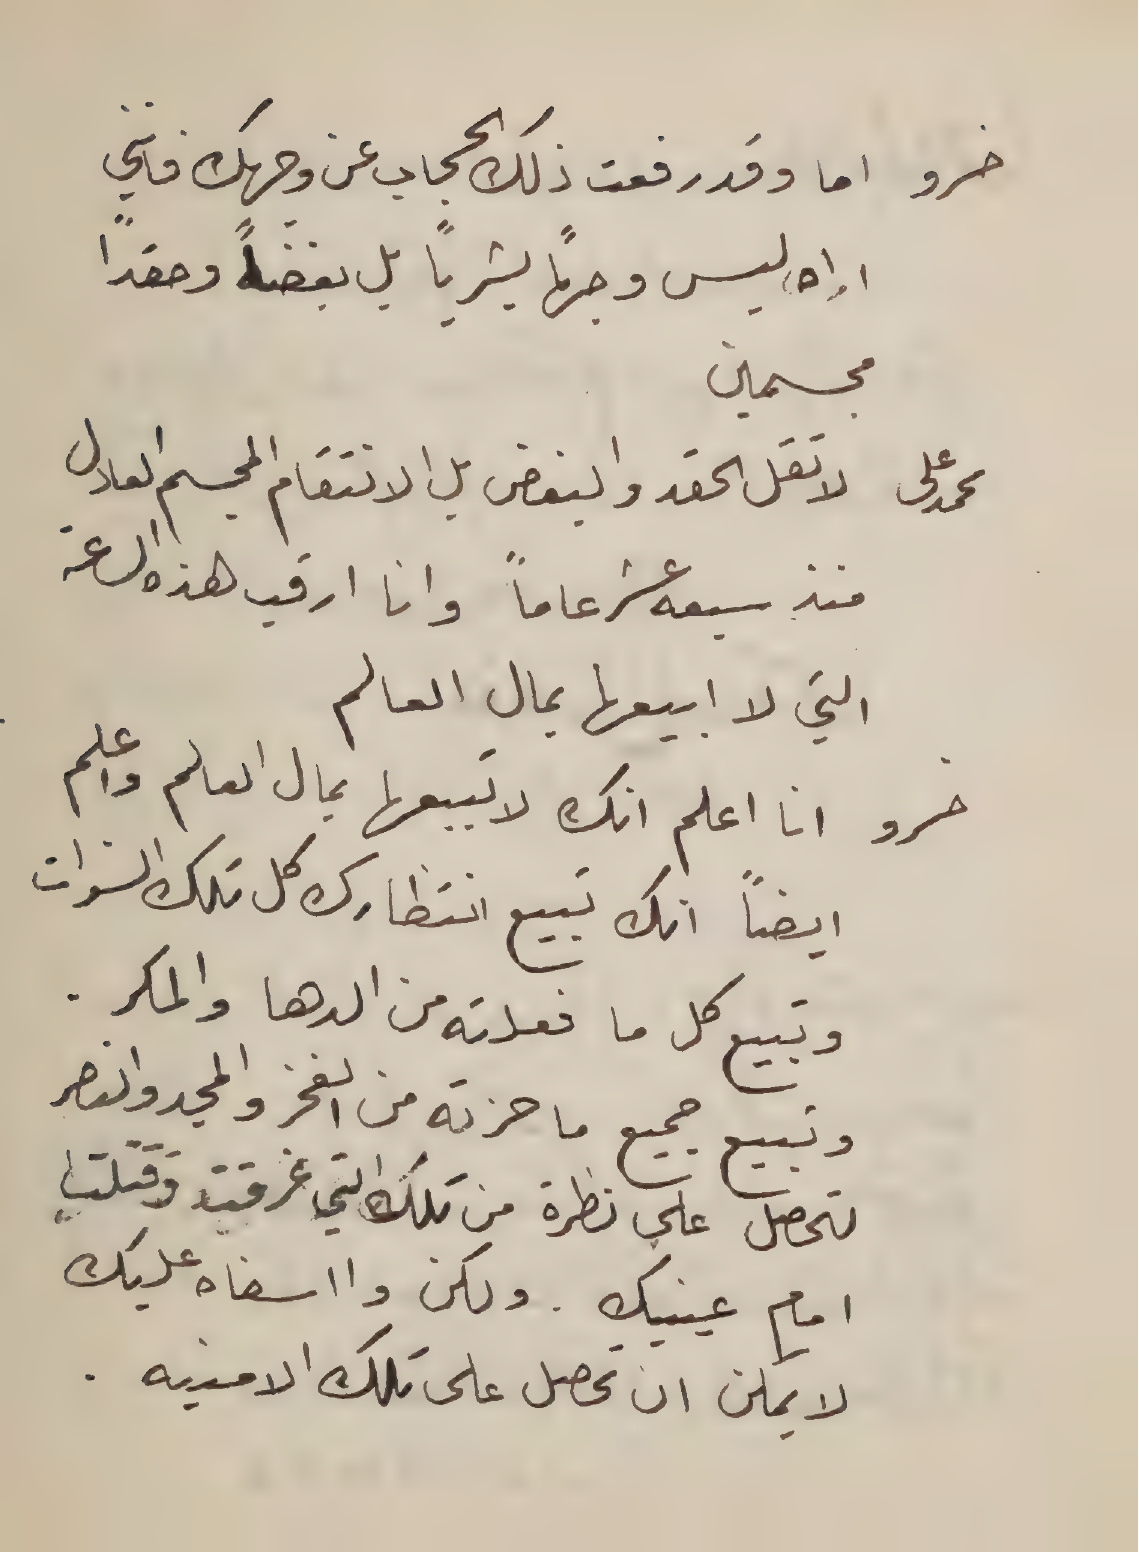 خسرو اما وقد رفعت ذلك الحجاب عن وجهك فانني
اراه ليس وجهًا بشريًا بل بغضًا وحقدًا
مجسمين
محمد علي لا تقل الحقد والبغض بل الانتقام المجسم العادل
منذ سبعه عشر عاماً وانا ارقب هذه الساعة
التي لا ابيعها بمال العالم
خسرو انا اعلم انك لا تبيعها بمال العالم واعلم
ايضاً انك تبيع انتظارك كل تلك السنوات
وتبيع كل ما فعلته من الدها والمكر .
وتبيع جميع ما حزته من الفخر والمجد والنصر
لتحصل على نظرة من تلك التي غرقت وقتلتها
امام عينيك . ولكن وا اسفاه عليك
لا يمكن ان تحصل على تلك الامنيه .